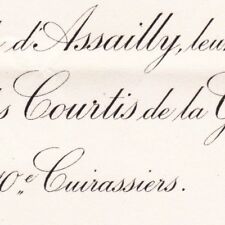 d'Assailly, leur
Courtis de la G
10e Cuirassiers.